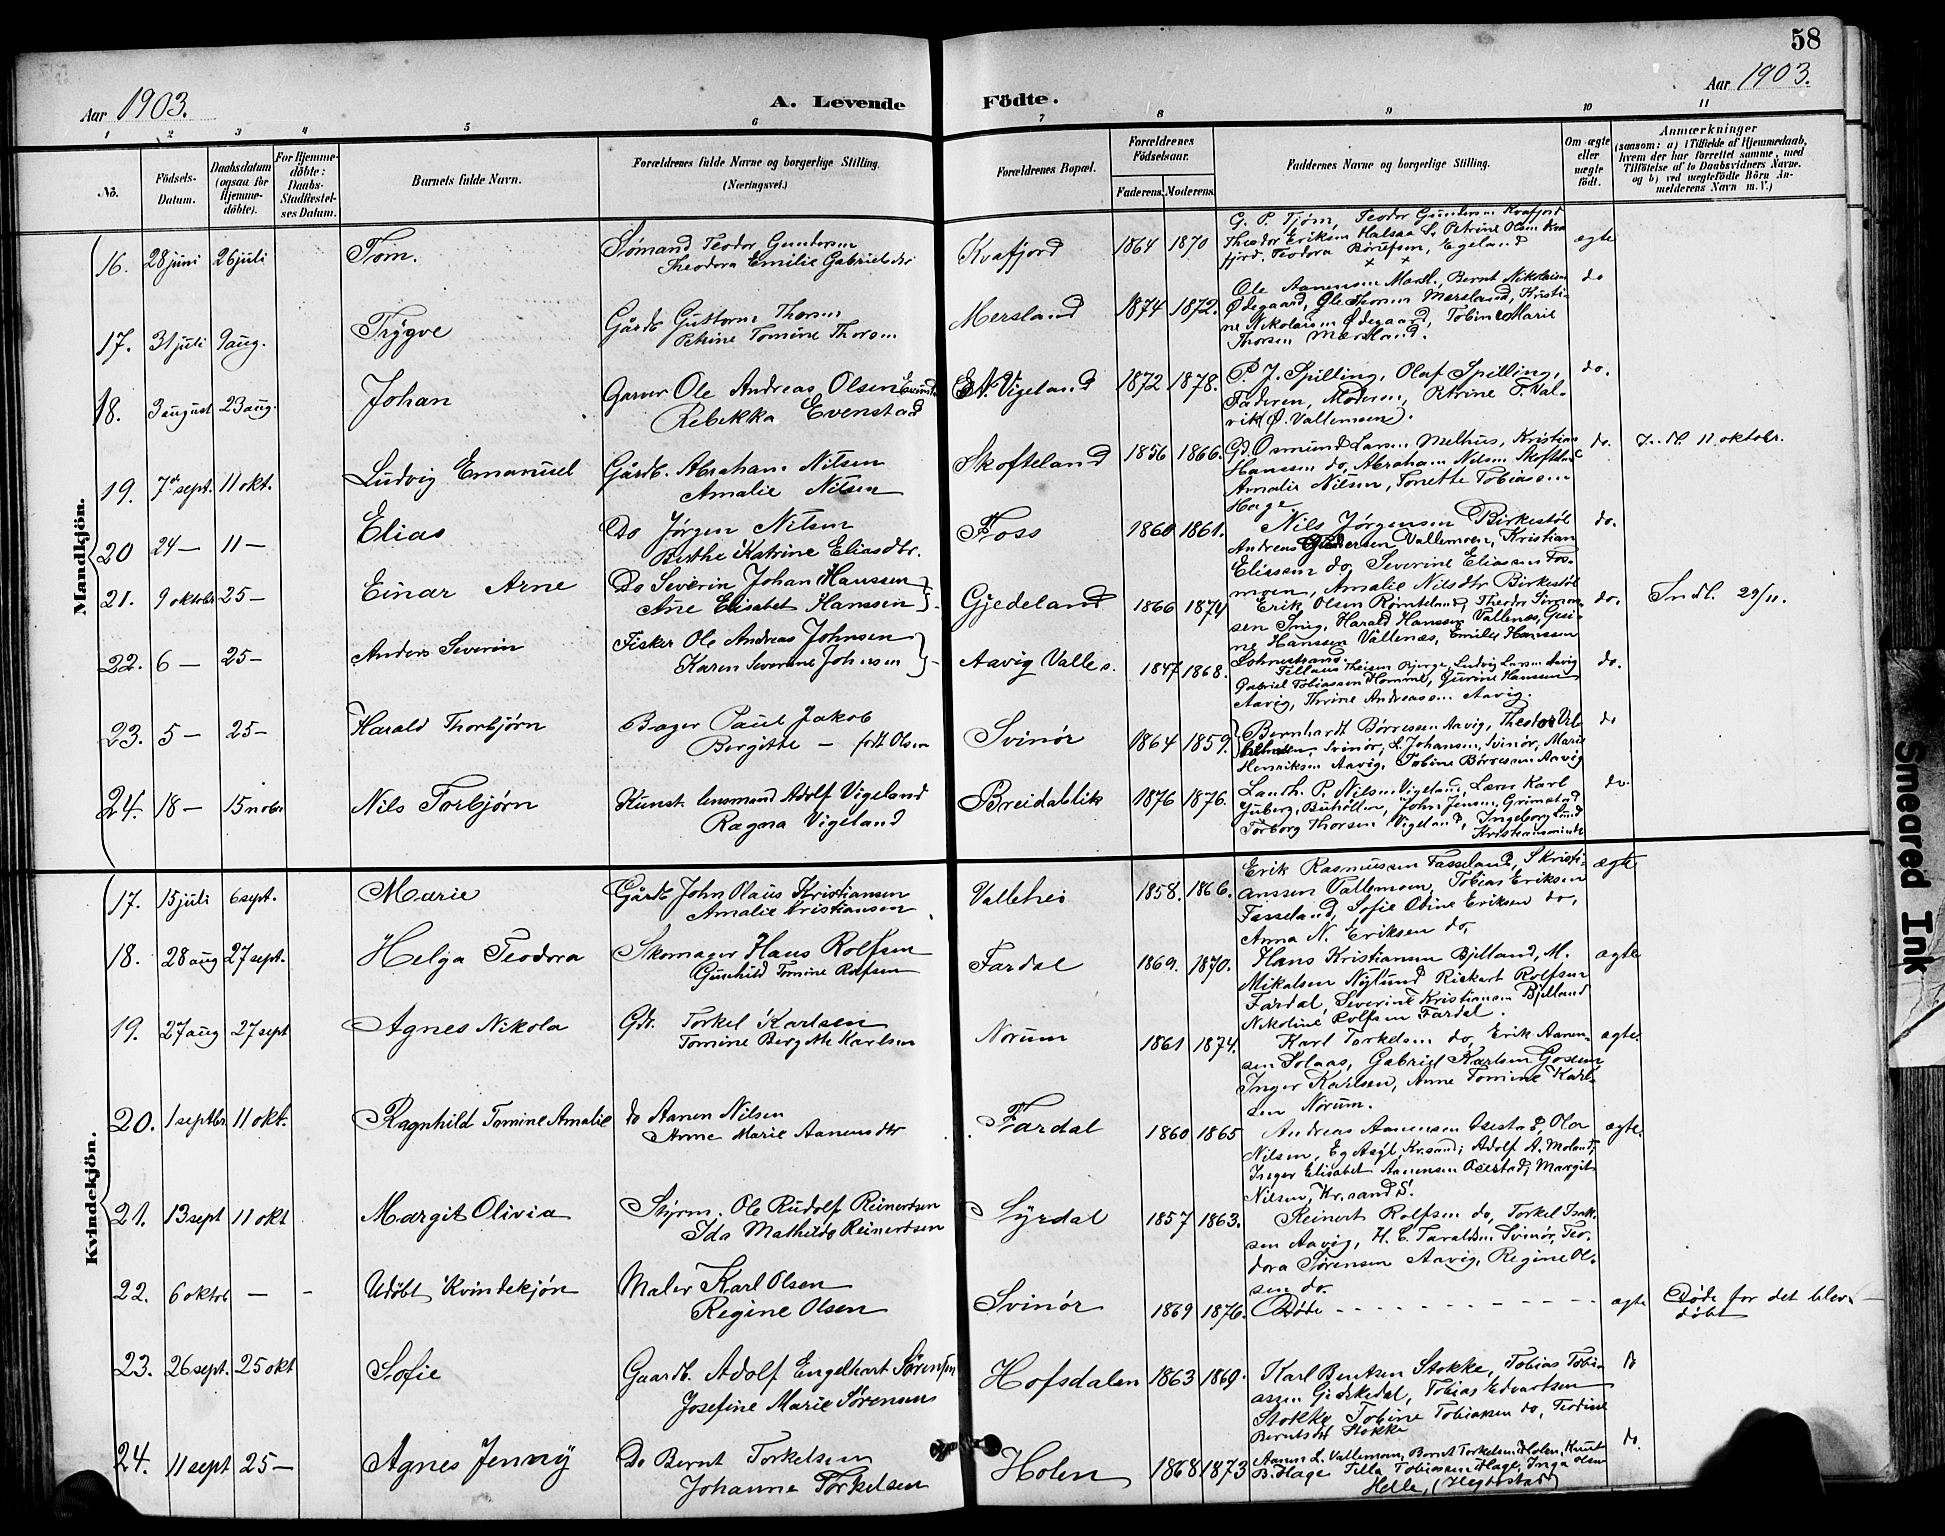 58
Aar 1903.
A. Levende
Födte.
Aar 1903.
1 2 3 4 5 6 7 8 9 10 11
No.
Födsels-
Datum.
Daabsdatum
(ogsaa for
Hjemme-
döbte).
For Hjemme-
döbte:
Daabs-
Stadfæstel-
ses Datum.
Barnets fulde Navn.
Forældrenes fulde Navne og borgerlige Stilling.
(Næringsvei.)
Forældrenes Bopæl.
Forældrenes
Födselsaar.
Faderens. Moderens.
Faddernes Navne og borgerlige Stilling.
Om ægte
eller
uægte
födt.
Anmærkninger
(saasom: a) i Tilfælde af Hjemmedaab,
hvem der har forrettet samme, med
Tilföielse af to Daabsvidners Navne.
og b) ved uægtefödte Börn An-
melderens Navn m. V.)
Mandkjön.
16. 28 juni 26 juli Tróm. Sömand Teodor Gundersen
Theodora Emilie Gabrielsdtr
Kvafjord 1864 1870
G. P. Tjóm, Teodor Gundersen Kvafjord
Theodor Eriksen Halsaa S. Petrine Olsen Kva
fjord. Teodora Börufsen, Egeland
ægte
17. 31 juli 9 aug. Trÿgve Gårdb. Guttorm Thorsen
Petrine Tomine Thorsen
Mersland 1874 1872.
Ole Aanensen Mersl., Bernt Nikolaisen
Ødegaard, Ole Thorsen Mersland, Kristi-
ne Nikolaisen Ødegaard, Tobine Marie
Thorsen Mersland.
do
18. 3 august 23 aug. Johan Garver Ole Andreas Olsen Evenstad
Rebekka Evenstad
N. Vigeland 1872 1878.
P. J. Spilling, Olaf Spilling,
Faderen, Moderen, Petrine F. Val-
vik (Ø. Vallemoen).
do.
19. 7de sept. 11 okt. Ludvig Emanuel Gårdb. Abraham Nilsen
Amalie Nilsen
Skofteland 1856 1866.
Gd. Osmund Larsen Melhus, Kristian
Hanssen do, Abraham Nilsen Skoftland
Amalie Nilsen, Tonette Tobiassen
Hage
do. Indl. 11 oktobr.
20 24 — 11 — Elias Do Jörgen Nilsen
Berthe Katrine Eliasdtr.
Foss 1860 1861.
Nils Jörgensen Birkestöl
Andreas Gundersen Vallemoen, Kristian
Eliassen do, Severine Eliassen Fos-
moen, Amalie Nilsdtr Birkestöl
do.
21. 9 oktobr 25 — Einar Arne Do Severin Johan Hanssen
Ane Elisabet Hanssen
Gjedeland 1866 1874
Erik Olsen Rönteland, Theodor Simon-
sen Snig, Harald Hanssen Vallenæs, Gesi-
ne Hanssen Vallenæs, Emilie Hanssen
Lohnestrand
do. Indl. 29/11.
22. 6 — 25 — Anders Severin Fisker Ole Andreas Johnsen
Karen Severine Johnsen
Aavig Valle s. 1847 1868.
Tillaus Theisen Bjerge, Ludvig Larsen Aavig
Gabriel Tobiassen Homme, Gurine Hanssen
Aavig, Thrine Andreassen Aavig.
do.
23. 5 — 25 — Harald Thorbjörn Bager Paul Jakob
Bergitte — född Olsen
Svinör 1864 1859.
Bernhardt Börressen Aavig, Theodor Vil-
helmsen, Svinör, L. Johansen, Svinör, Marie
Henriksen Aavig, Tobine Börresen Aavig
do
24. 18 — 15 nobr Nils Torbjörn Kunst. lensmand Adolf Vigeland
Ragna Vigeland
Breidablik 1876 1876.
Landh. P. Nilsen Vigeland, Lærer Karl
Juberg, Buholten, John Jensen, Grimstad
Torborg Thorsen Vigeland, Ingeborg Lund
Kristiansminde
do
Kvindekjön.
17. 15 juli 6 sept. Marie Gårdb John Olaus Kristiansen
Amalie Kristiansen
Vallehei 1858. 1866.
Erik Rasmussen Fasseland, S Kristi-
anssen Vallemoen, Tobias Eriksen
Fasseland, Sofie Oline Eriksen do,
Anna N. Eriksen do,
ægte
18. 28 aug 27 sept. Helga Teodora Skomager Hans Rolfsen
Gunhild Tomine Rolfsen
Fardal 1869. 1870.
Hans Kristiansen Bjelland, M.
Mikalsen Nÿlund Rickart Rolfsen
Fardal, Severine Kristiansen Bjelland
Nikoline Rolfsen Fardal.
ægte
19. 27 aug 27 sept Agnes Nikola Gdb. Torkel Karlsen
Tomine Bergitte Karlsen
Norum 1861 1874.
Karl Torkelsen do, Erik Aanen-
sen Solaas, Gabriel Karlsen Gosem
Inger Karlsen, Anne Tomine Karl-
sen Norum.
ægte.
20. 1 septbr 11 okt. Ragnhild Tomine Amalie do Aanen Nilsen
Anne Marie Aanensdtr
Fardal 1860 1865
Andreas Aanensen Osestad, Olav
Nilsen, Eg Asÿl, Kr.sand; Adolf A. Moland;
Inger Elisabet Aanensen Osestad; Margit
Nilsen, Kr.sand S.
ægte.
21. 13 sept 11 okt Margit Olivia Styrm. Ole Rudolf Reinertsen
Ida Mathilde Reinertsen
Syrdal 1857 1863.
Reinert Rolfsen do, Torkel Isak-
sen Aavig, H. C. Taraldsen Svinör, Teo-
dora Sørensen Aavig, Regine Ol-
sen do.
22. 6 oktob — - Udöbt Kvindekjön Maler Karl Olsen
Regine Olsen
Svinör 1869 1876.
Döde - - - - - - - - -
ægte Döde for det blev
döbt
23. 26 sept. 25 okt Sofie Gaardb. Adolf Engelhart Sørensen
Josefine Marie Sørensen
Hofsdalen 1863 1869.
Karl Berntsen Stokke, Tobias Tobi-
assen Gjeskedal, Tobias Edvartsen
Stokke Tobine Tobiassen do, Teodine
Berntsdtr Stokke
do
24. 11 sept 25 — Agnes Jenny Do Bernt Torkelsen
Johanne Torkelsen
Holen 1868 1873
Aanen L. Vallemoen, Bernt Torkelsen Holen, Knut
B. Hage Tilla Tobiassen Hage, Inga Olsen
Helle, (Hegtestad)
do.
Smeared Ink